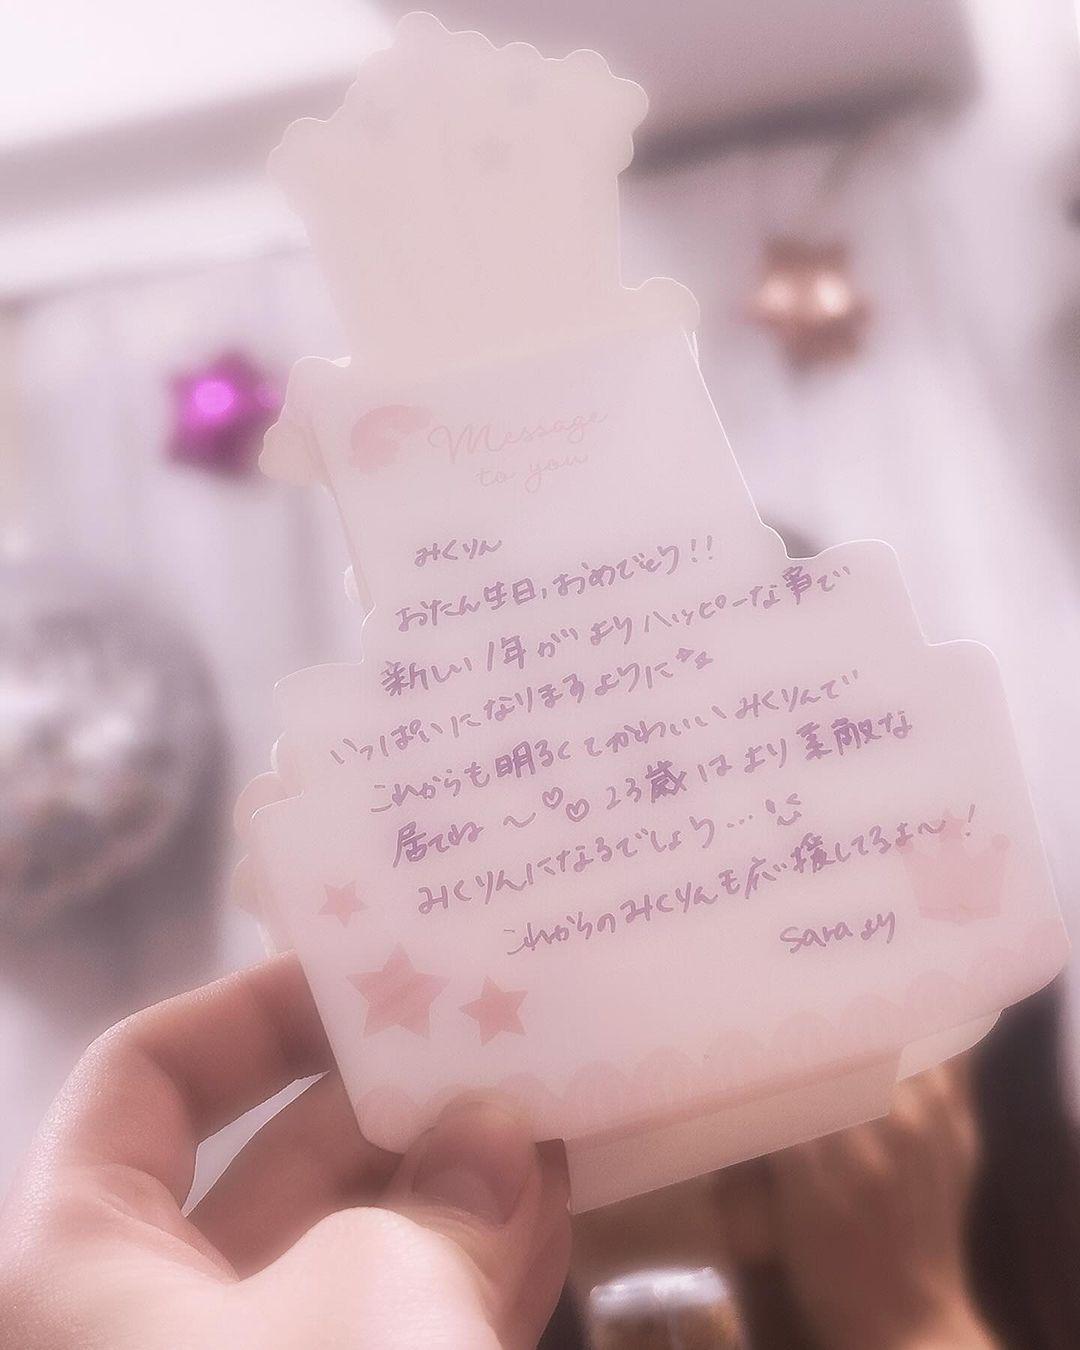 Message
to you
みくりん
おたん生日、おめでとう!!
新しい1年がよりハッピーな事で
いっぱいになりますように
これからも明るくてかわいいみくりんで
居てね〜♡♡ 23歳はより素敵な
みくりんになるでしょう…
これからのみくりんも応援してるよ〜!
saraより